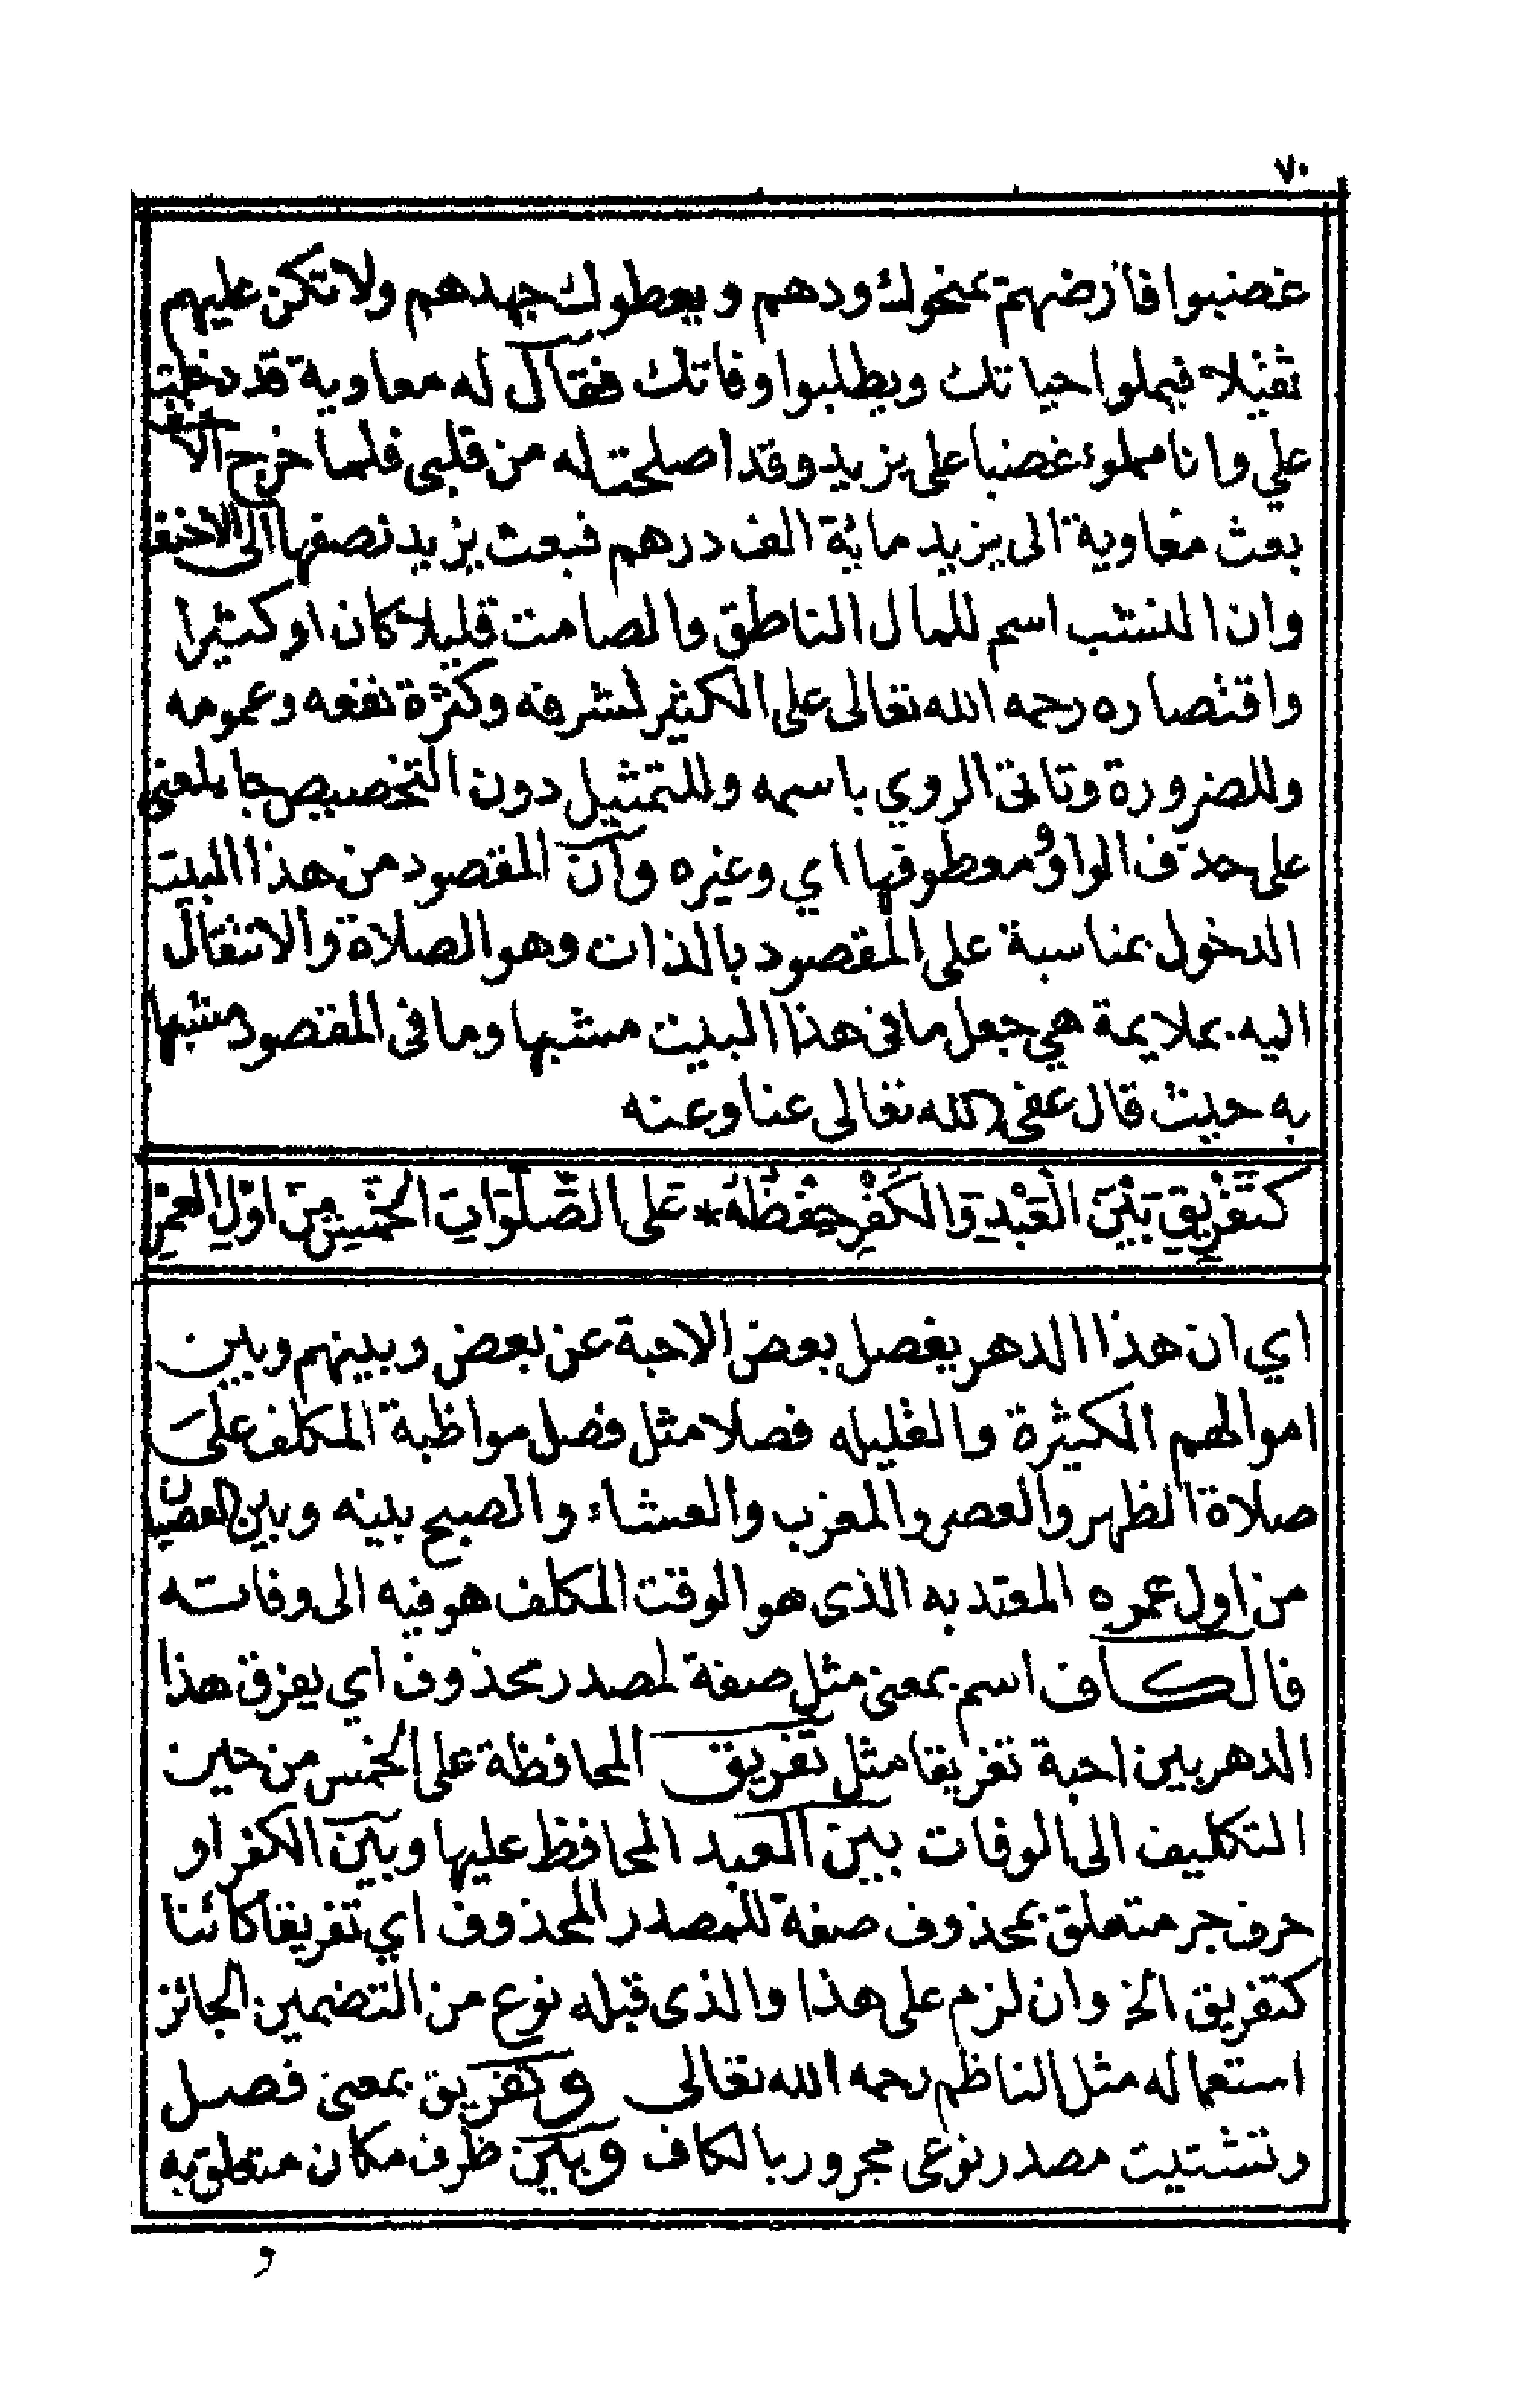 ٧٠
غضبوا فارضهم يمنحوك ودهم ويعطوك جهدهم ولا تكن عليهم
ثقيلا فيملوا حياتك ويطلبوا وفاتك فقال له معاوية قد دخلت
علي وانا مملوء غضبا على يزيد وقد اصلحت له من قلبي فلما خرج الاحنف
بعث معاوية الى يزيد ماية الف درهم فبعث يزيد نصفها الى الاحنف
وان النشب اسم للمال الناطق والصامت قليلا كان او كثيرا
واقتصاره رحمه الله تعالى على الكثير لشرفه وكثرة نفعه وعمومه
وللضرورة وتاتى الروي باسمه وللتمثيل دون التخصيص
على حذف الواو ومعطوفها اي وغيره وان المقصود من هذا البيت
الدخول بمناسبة على المقصود بالذات وهو الصلاة والانتقال
اليه بملايمة هي جعل ما فى هذا البيت مشبها وما فى المقصود مشبها
به حيث قال عفى الله تعالى عنا وعنه
كَتَفْرِيقِ بَيْنَ الْعَبْدِ وَالكُفْرِ حِفْظُهُ * عَلَى الصَّلَوَاتِ الخَمْسِ مِنْ اوَّلِ العُمْرِ
اي ان هذا الدهر يفصل بعض الاحبة عن بعض وبينهم وبين
اموالهم الكثيرة والقليله فصلا مثل فصل مواظبة المكلف على
صلاة الظهر والعصر والمغرب والعشاء والصبح بينه وبين العصيان
من اول عمره المعتد به الذى هو الوقت المكلف هو فيه الى وفاته
فالكاف اسم بمعنى مثل صفة لمصدر محذوف اي يفرق هذا
الدهر بين احبة تفريقا مثل تفريق المحافظة على الخمس من حين
التكليف الى الوفات بين العبد المحافظ عليها وبين الكفر او
حرف جر متعلق بمحذوف صفة للمصدر المحذوف اي تفريقا كائنا
كتفريق الخ وان لزم على هذا والذى قبله نوع من التضمين الجائز
استعماله مثل الناظم رحمه الله تعالى وتفريق بمعنى فصل
وتشتيت مصدر نوعى مجرور بالكاف وبين ظرف مكان متعلق به
و